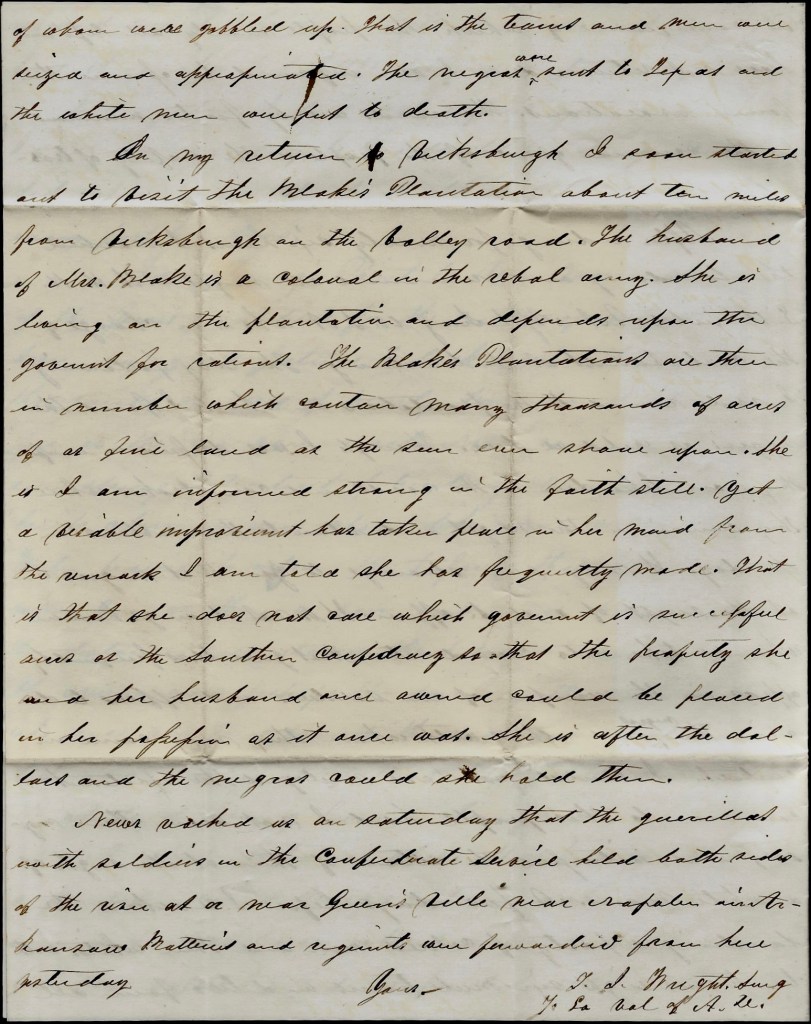 of whom were gobbled up. That is the teams and men were
seized and appropriated. The negros were sent to Texas and
the white men were put to death.
On my return to Vicksburgh I soon started
out to visit the Blake's Plantation about ten miles
from Vicksburgh on the Valley road. The husband
of Mrs. Blake is a colonal in the rebal army. She is
living on the plantation and depends upon the
goverment for rations. The Blake's Plantations are three
in number which contain many thousands of acres
of as fine land as the sun ever shone upon. She
is I am informed strong in the faith still. Yet
a visable improvement has taken place in her mind from
the remark I am told she has frequently made. That
is that she does not care which goverment is successful
ours or the Southern Confedracy so that the property she
and her husband once owned could be placed
in her possession as it once was. She is after the dol-
lars and the negros could she hold them.
News reached us on saturday that the guerillas
with soldiers in the Confederate Service held both sides
of the river at or near Green's Ville near Napolen in Ar-
kansaw Batteries and regiments were forwarded from here
yesterday Yours
T. J. Wright. Surg
7. La Vol of A. De.